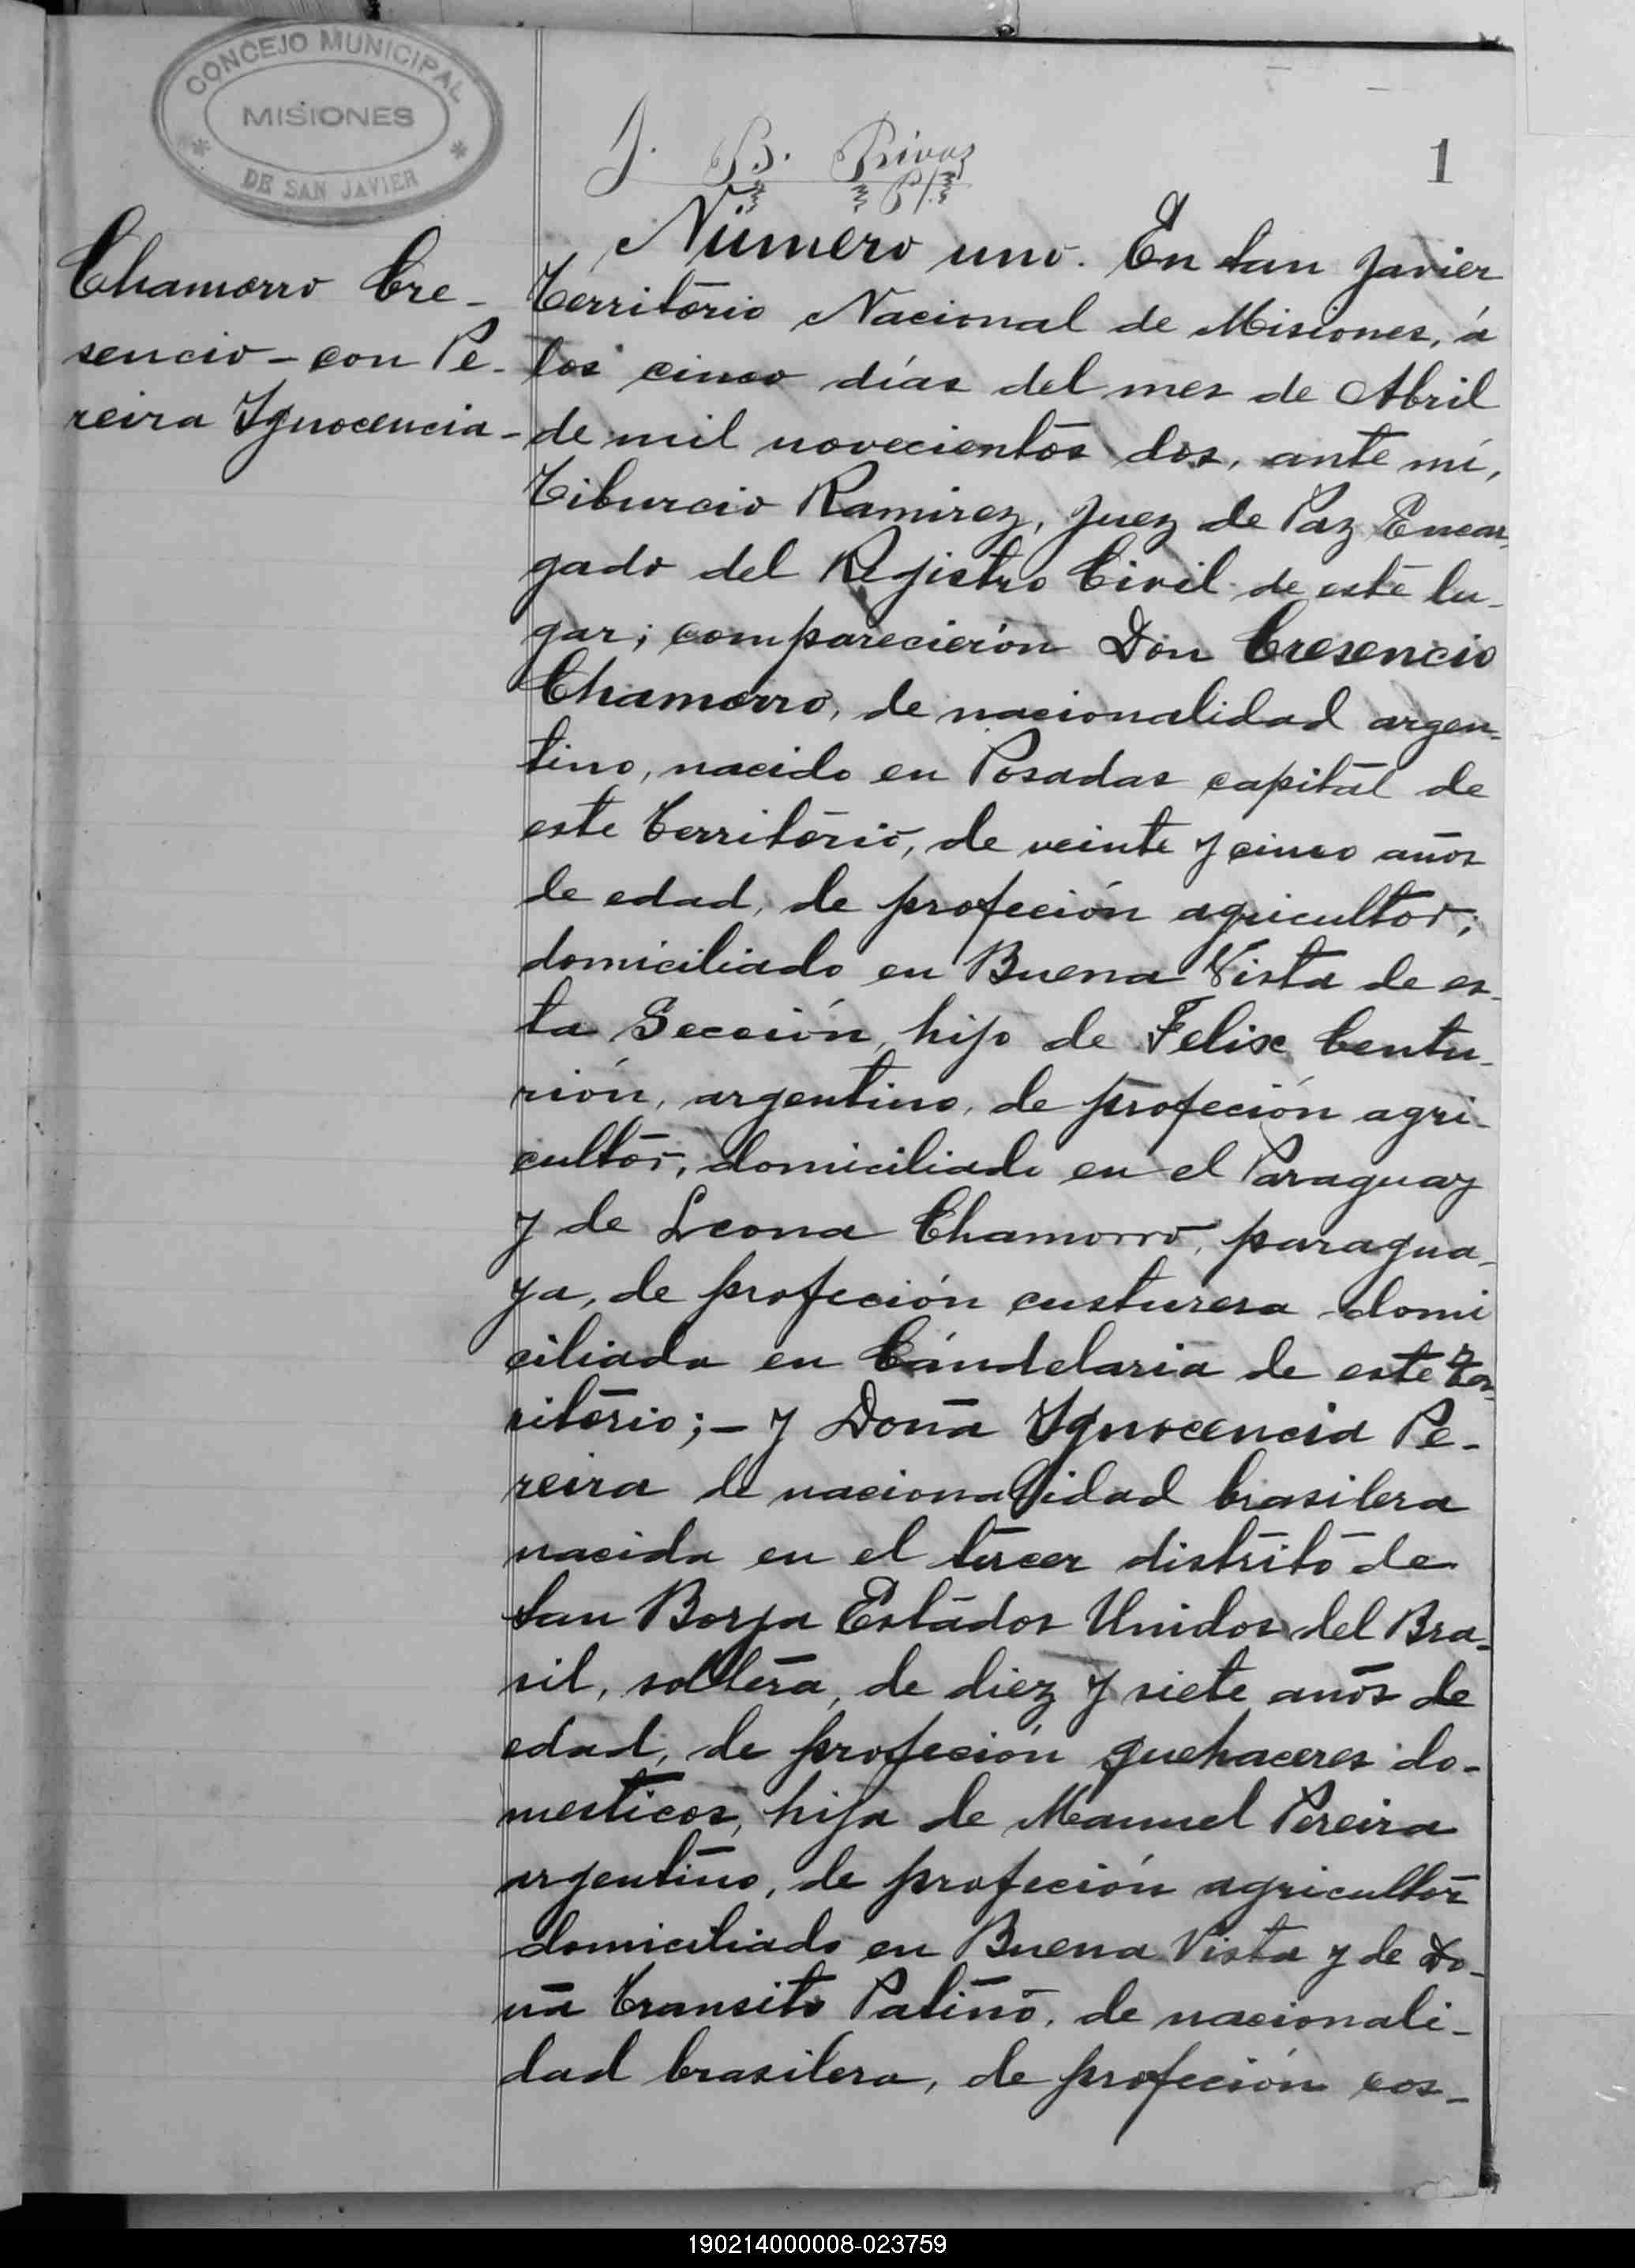 CONCEJO MUNICIPAL
MISIONES
DE SAN JAVIER
J. B. Rivas
1
Chamorro Cre-
sencio - con Pe-
reira Ygnocencia -
Número uno. En San Javier
Territorio Nacional de Misiones, á
los cinco días del mes de Abril
de mil novecientos dos, ante mí,
Tiburcio Ramirez, Juez de Paz Encar-
gado del Registro Civil de este lu-
gar; comparecierón Don Cresencio
Chamorro, de nacionalidad argen-
tino, nacido en Posadas capital de
este Territorio, de veinte y cinco años
de edad, de profeción agricultor,
domiciliado en Buena Vista de es-
ta Sección, hijo de Felix Centu-
rión, argentino, de profeción agri-
cultor, domiciliado en el Paraguay
y de Leona Chamorro, paragua-
ya, de profeción custurera domi
ciliada en Cándelaria de este Ter-
ritorio; - y Doña Ygnocencia Pe-
reira de nacionalidad brasilera
nacida en el tercer distrito de
San Borja Estados Unidos del Bra-
sil, soltera, de diez y siete años de
edad, de profeción quehaceres do-
mesticos, hija de Manuel Pereira
argentino, de profeción agricultor
domiciliado en Buena Vista y de Do-
ña Transito Patiño, de nacionali-
dad brasilera, de profeción cos-
190214000008-023759